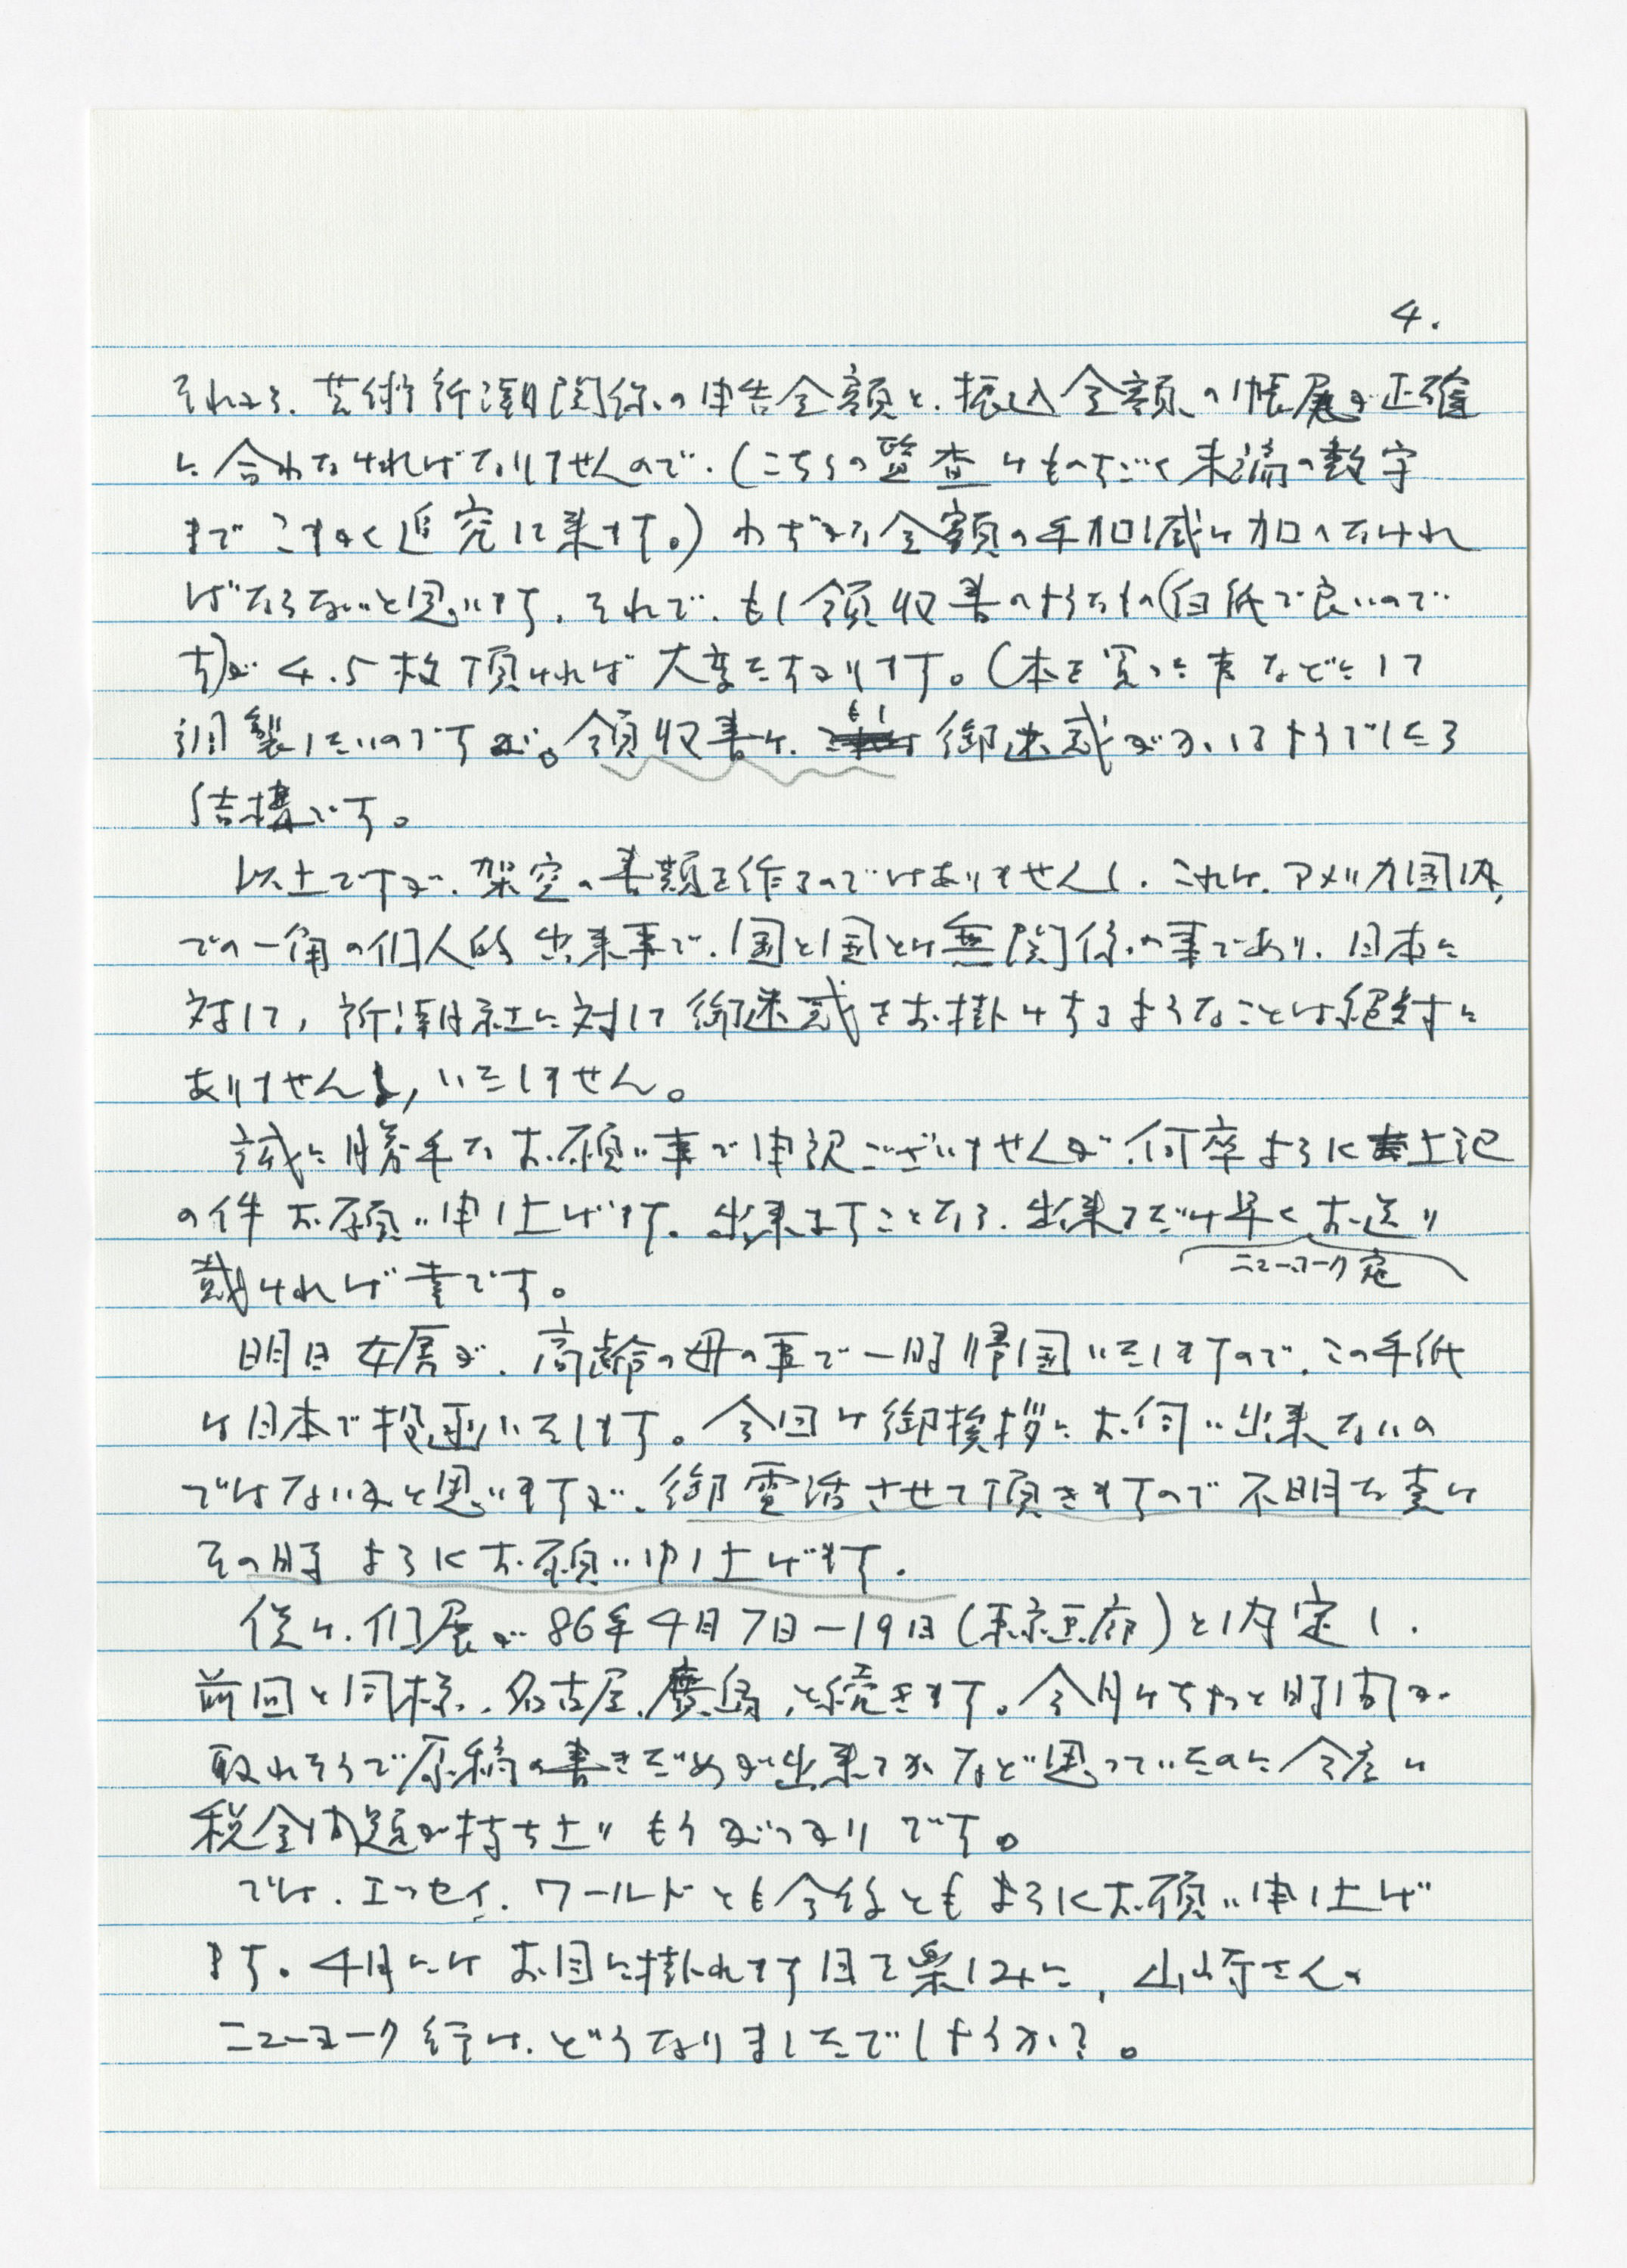 4.
それから、芸術新潮関係の申告金額と、振込金額の帳尻が正確
に合わなければなりませんので、(こちらの監査はものすごく末端の数字
までこまかく追究に来ます。)わずかな金額の手加減は加へなけれ
ばならないと思います、それで、もし領収書のやうなもの(白紙で良いので
す)が4.5枚頂ければ大変たすかります。(本を買った事などにして
調製したいのですが。領収書は、もし御迷惑がかゝるやうでしたら
結構です。
以上ですが、架空の書類を作るのではありませんし、これは、アメリカ国内
での一角の個人的出来事で、国と国とは無関係の事であり、日本に
対して、新潮社に対して御迷惑をお掛けするようなことは絶対に
ありませんし、いたしません。
誠に勝手なお願い事で申訳ございませんが、何卒よろしく上記
の件お願い申し上げます。出来ますことなら、出来るだけ早くお送り
ニューヨーク宛
戴ければ幸です。
明日女房が、高齢の母の事で一時帰国いたしますので、この手紙
は日本で投函いたします。今回は御挨拶にお伺い出来ないの
ではないかと思いますが、御電話させて頂きますので不明な点は
その時よろしくお願い申し上げます。
僕は、個展が86年4月7日ー19日(東京画廊)と内定し、
前回と同様、名古屋、廣島、と続きます。今月はちょっと時間が
取れそうで原稿の書きだめが出来るかなど思っていたのに今度は
税金問題が持ち上りもうがっかりです。
では、エッセイ、ワールドとも今後ともよろしくお願い申し上げ
ます。4月にはお目に掛れます日を楽しみに、山崎さんの
ニューヨーク行は、どうなりましたでしょうか?。